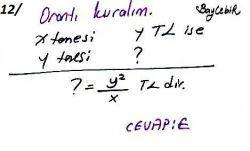 12/ Orantı kuralım. Baycebir
x tanesi y TL ise
y tanesi ?
? = y²/x TL dir.
CEVAP:E